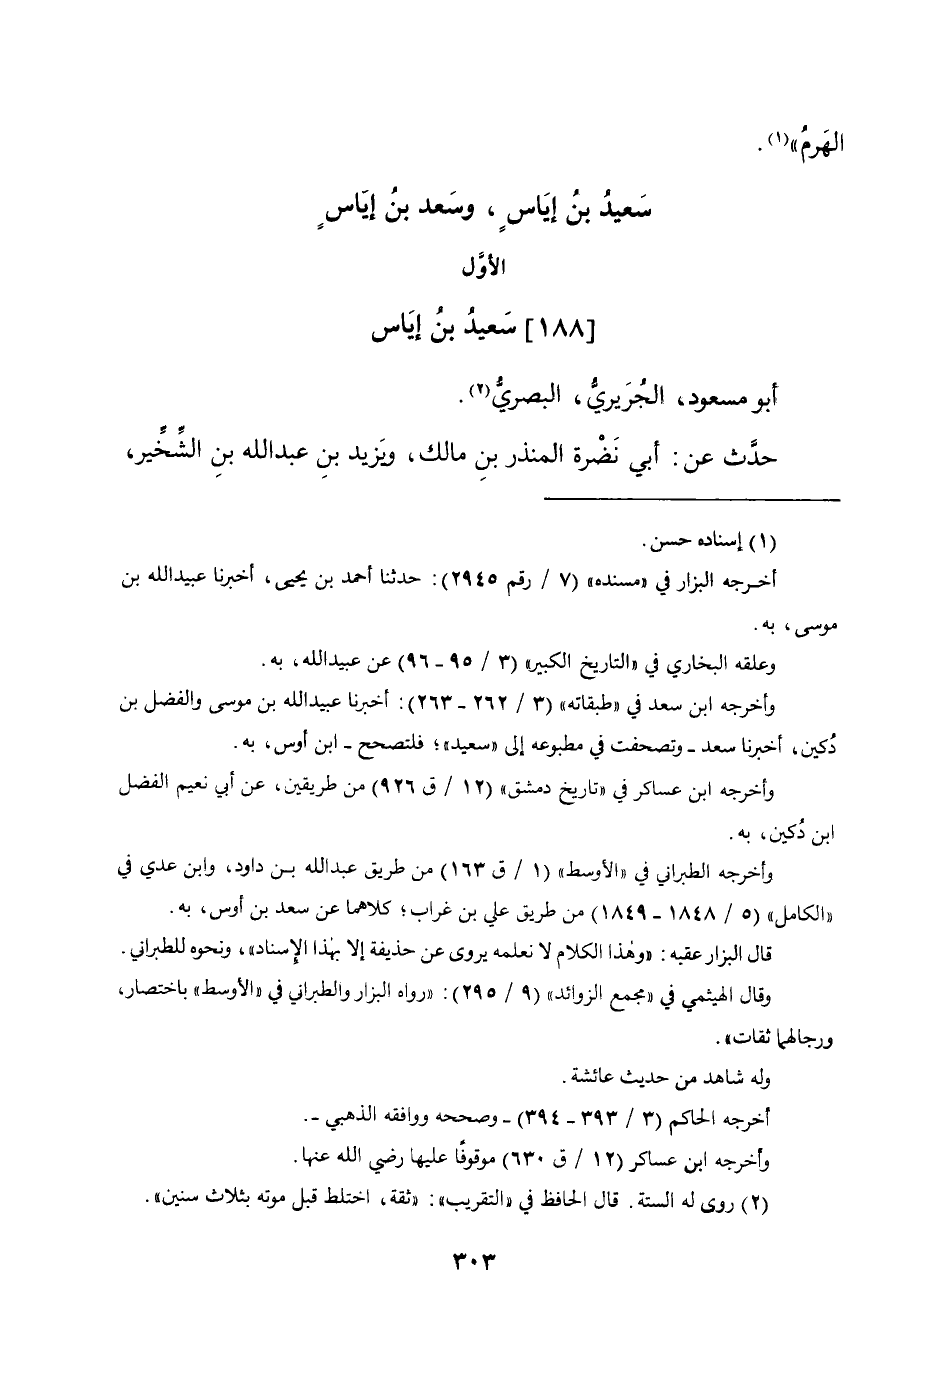 الهَرمُ»(١).
سَعيدُ بنُ إيَاسٍ، وسَعد بنُ إيَاسٍ
الأوَّل
[١٨٨] سَعيدُ بنُ إيَاس
أبو مسعود، الجُرَيريُّ، البصريُّ(٢).
حدَّث عن: أبي نَضْرة المنذر بنِ مالك، ويَزيد بنِ عبدالله بنِ الشِّخِّير،
(١) إسناده حسن.
أخرجه البزار في «مسنده» (٧ / رقم ٢٩٤٥): حدثنا أحمد بن يحيى، أخبرنا عبيدالله بن
موسى، به.
وعلقه البخاري في «التاريخ الكبير» (٣ / ٩٥ ـ ٩٦) عن عبيدالله، به.
وأخرجه ابن سعد في «طبقاته» (٣ / ٢٦٢ ـ ٢٦٣): أخبرنا عبيدالله بن موسى والفضل بن
دُكين، أخبرنا سعد ـ وتصحفت في مطبوعه إلى «سعيد»؛ فلتصحح ـ ابن أوس، به.
وأخرجه ابن عساكر في «تاريخ دمشق» (١٢ / ق ٩٢٦) من طريقين، عن أبي نعيم الفضل
ابن دُكين، به.
وأخرجه الطبراني في «الأوسط» (١ / ق ١٦٣) من طريق عبدالله بن داود، وابن عدي في
«الكامل» (٥ / ١٨٤٨ ـ ١٨٤٩) من طريق علي بن غراب؛ كلاهما عن سعد بن أوس، به.
قال البزار عقبه: «وهٰذا الكلام لا نعلمه يروى عن حذيفة إلا بهٰذا الإسناد»، ونحوه للطبراني.
وقال الهيثمي في «مجمع الزوائد» (٩ / ٢٩٥): «رواه البزار والطبراني في «الأوسط» باختصار،
ورجالهما ثقات».
وله شاهد من حديث عائشة.
أخرجه الحاكم (٣ / ٣٩٣ ـ ٣٩٤) ـ وصححه ووافقه الذهبي ـ.
وأخرجه ابن عساكر (١٢ / ق ٦٣٠) موقوفًا عليها رضي الله عنها.
(٢) روى له الستة. قال الحافظ في «التقريب»: «ثقة، اختلط قبل موته بثلاث سنين».
٣٠٣